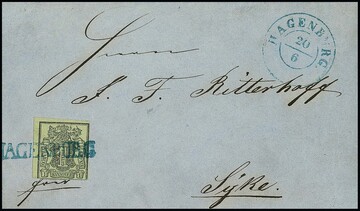 HAGENBURG
20
6
Herrn
J. F. Ritterhoff
HAGENBURG
frei
Syke.